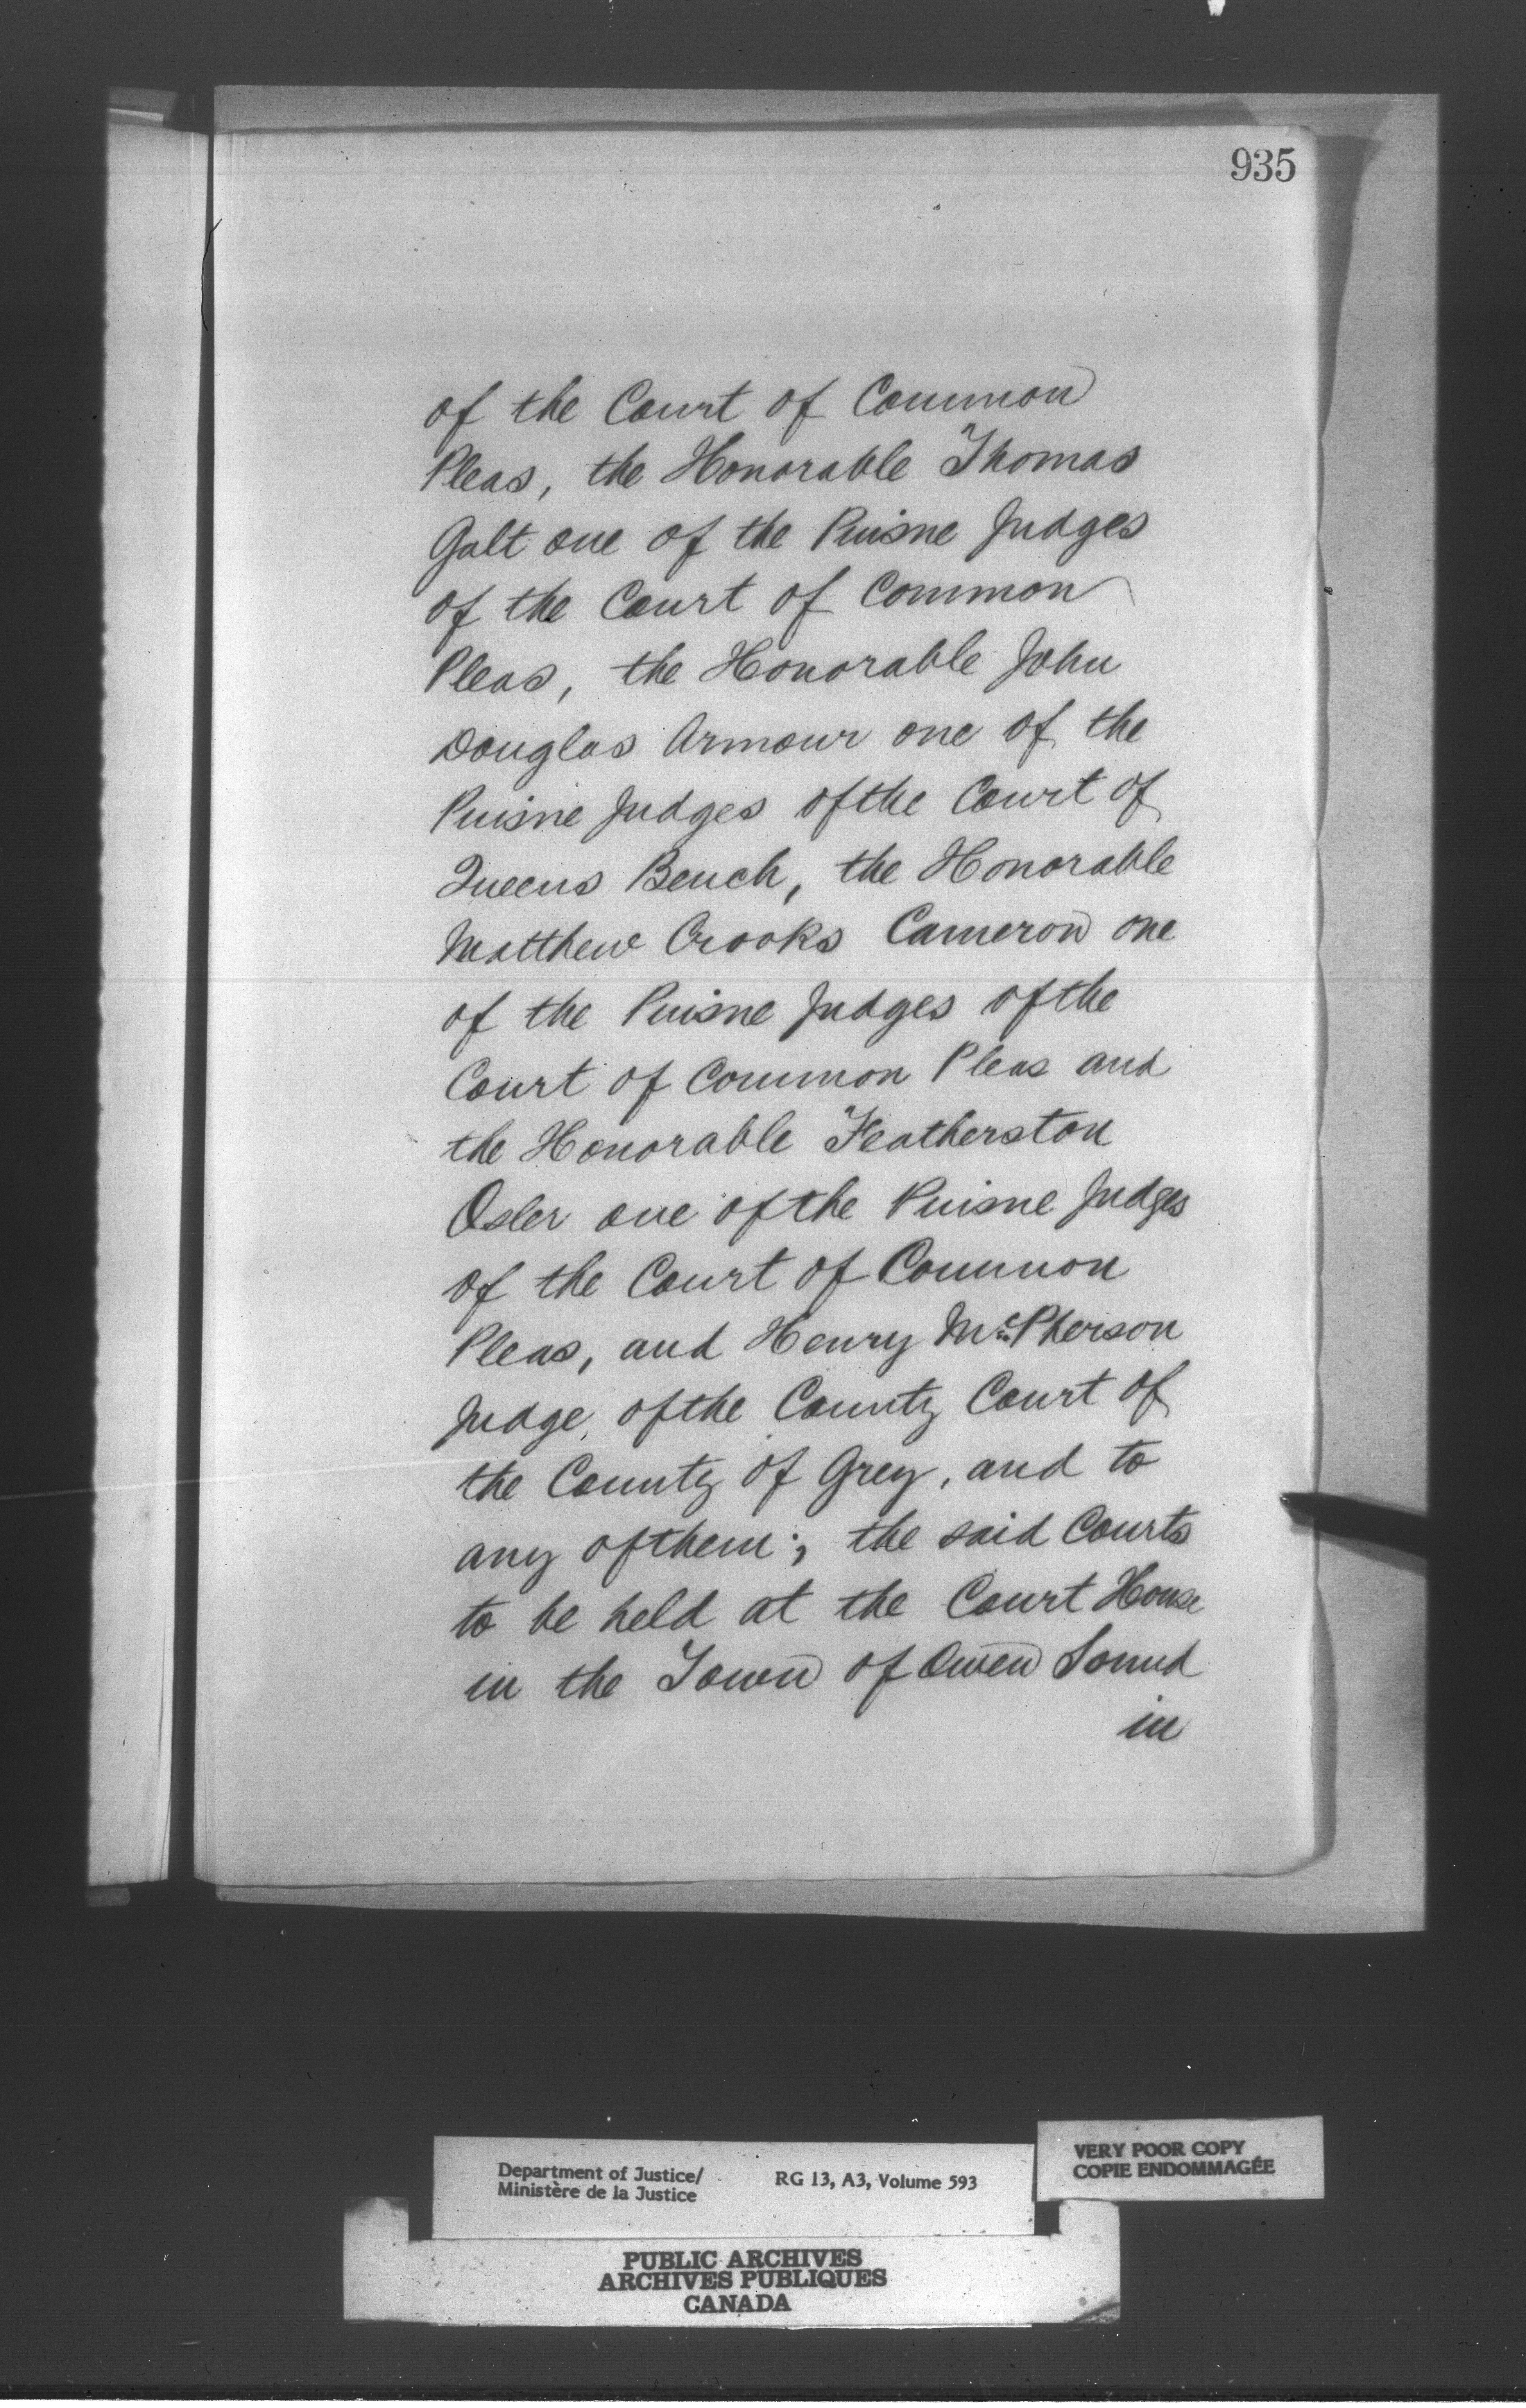 935
of the Court of Common
Pleas, the Honorable Thomas
Galt one of the Puisne Judges
of the Court of Common
Pleas, the Honorable John
Douglas Armour one of the
Puisne Judges of the Court of
Queens Bench, the Honorable
Matthew Crooks Cameron one
of the Puisne Judges of the
Court of Common Pleas and
the Honorable Featherston
Osler one of the Puisne Judges
of the Court of Common
Pleas, and Henry McPherson
Judge of the County Court of
the County of Grey, and to
any of them; the said Courts
to be held at the Court House
in the Town of Owen Sound
in
Department of Justice/
Ministère de la Justice
RG 13, A3, Volume 593
VERY POOR COPY
COPIE ENDOMMAGÉE
PUBLIC ARCHIVES
ARCHIVES PUBLIQUES
CANADA